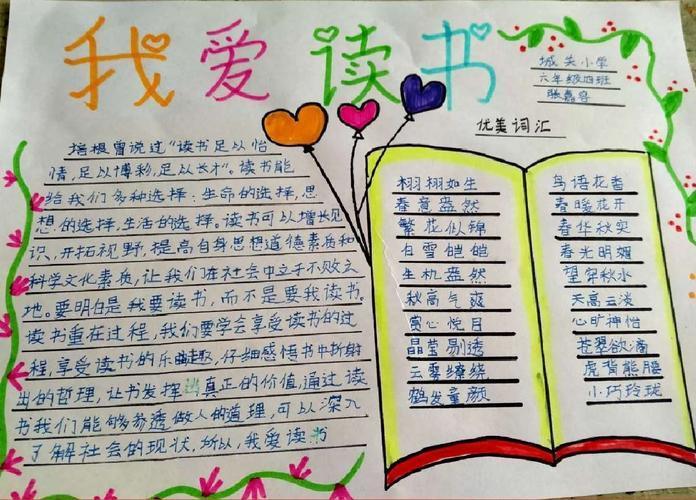 我爱读书
城关小学
六年级四班
张嘉容
优美词汇
培根曾说过“读书足以怡
情，足以博彩，足以长才”。读书能
给我们多种选择：生命的选择，思
想的选择，生活的选择。读书可以增长见
识，开拓视野，提高自身思想道德素质和
科学文化素质，让我们在社会中立于不败之
地。要明白是我要读书，而不是要我读书。
读书重在过程，我们要学会享受读书的过
程，享受读书的乐趣，仔细感悟书中折射
出的哲理，让书发挥出真正的价值，通过读
书我们能够参透做人的道理，可以深入
了解社会的现状，所以，我爱读书
栩栩如生
春意盎然
繁花似锦
白雪皑皑
生机盎然
秋高气爽
赏心悦目
晶莹剔透
云雾缭绕
鹤发童颜
鸟语花香
春暖花开
春华秋实
春光明媚
望穿秋水
天高云淡
心旷神怡
苍翠欲滴
虎背熊腰
小巧玲珑